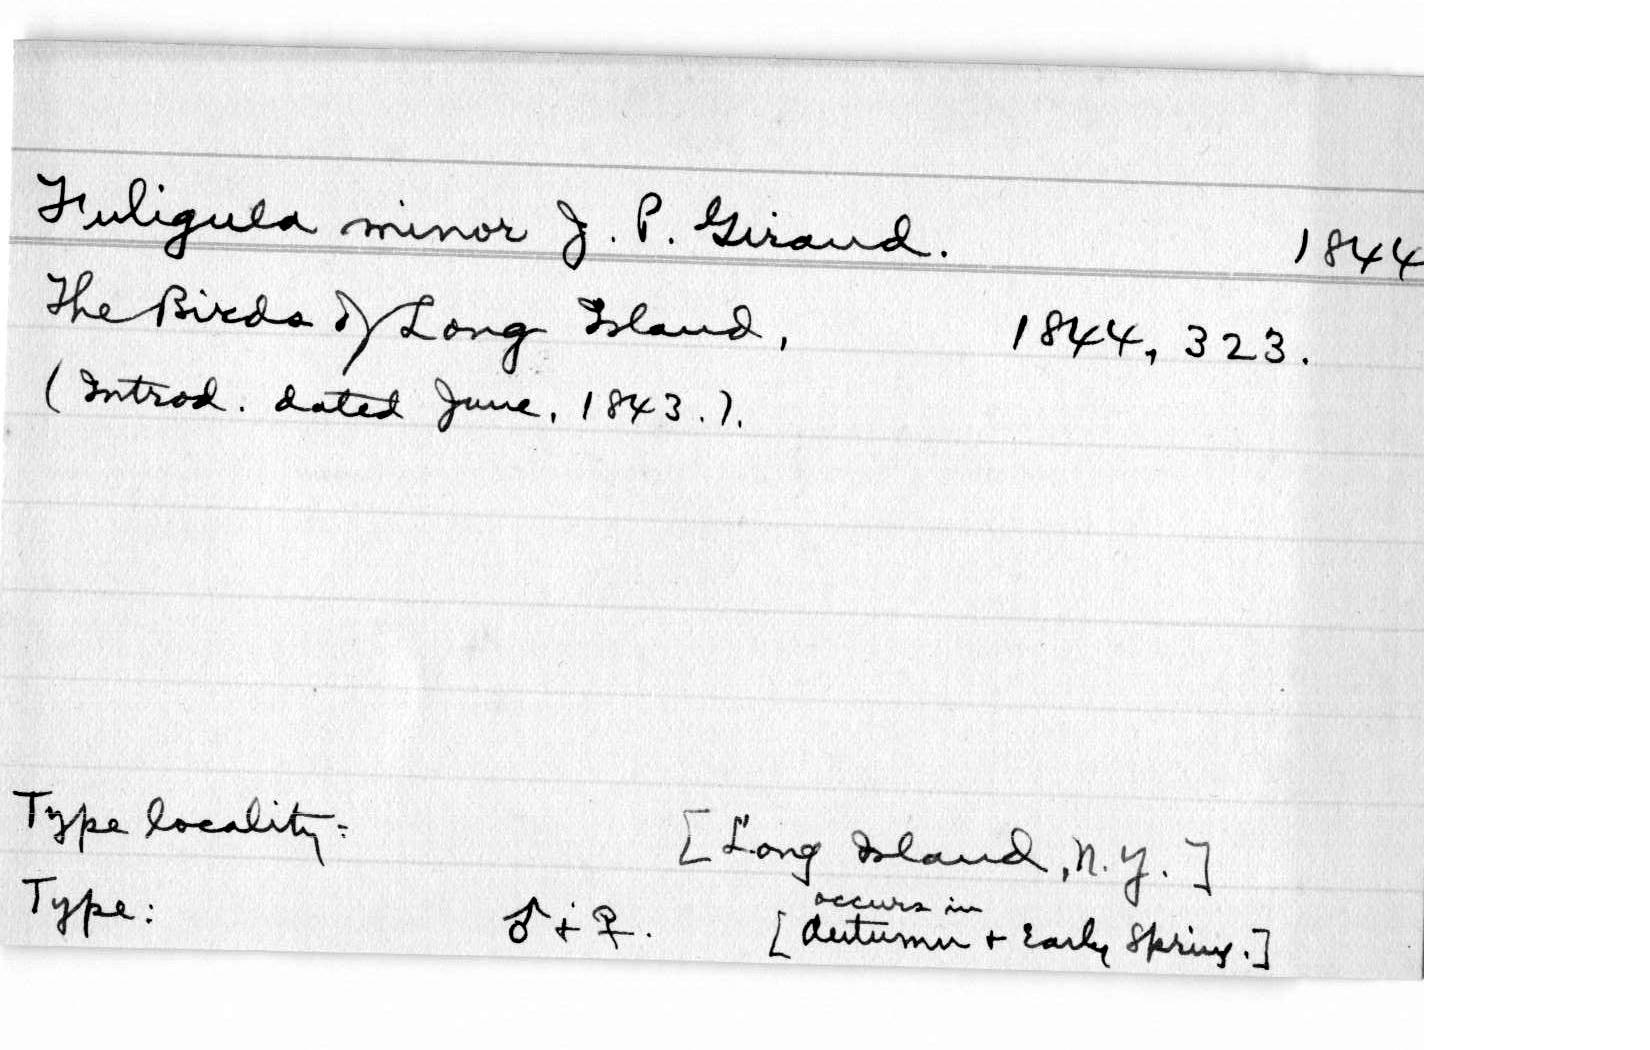 Fuligula minor J. P. Giraud. 1844
The Birds of Long Island, 1844, 323.
(Introd. dated June, 1843.).
Type locality: [Long Island, N.Y.]
occurs in
Type: ♂ + ♀. [Autumn + Early Spring.]